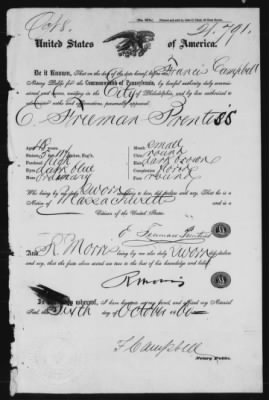 21.791.
United States of America.
Be it Known, That on the day of the date hereof, before me Francis Campbell
Notary Public for the Commonwealth of Pennsylvania, by lawful authority duly
and residing in the City of Philadelphia, and by law authorized to
personally appeared
C. Freeman Prentiss
Aged
Stature
Forehead high
Eyes dark blue
Nose ordinary
Mouth small
Chin round
Hair dark brown
Complexion florid
Face round
Who being by me duly sworn
say, that he is a
Native of Massachusetts and a
Citizen of the United States.
C Freeman Prentiss
And R Morris being by me duly sworn
did depose and say, that the facts above stated are true to the best of his knowledge and belief.
R Morris
In testimony whereof, I have hereunto set my hand, and affixed my Notarial
Seal, this Sixth day of October 1860
F. Campbell
Notary Public.